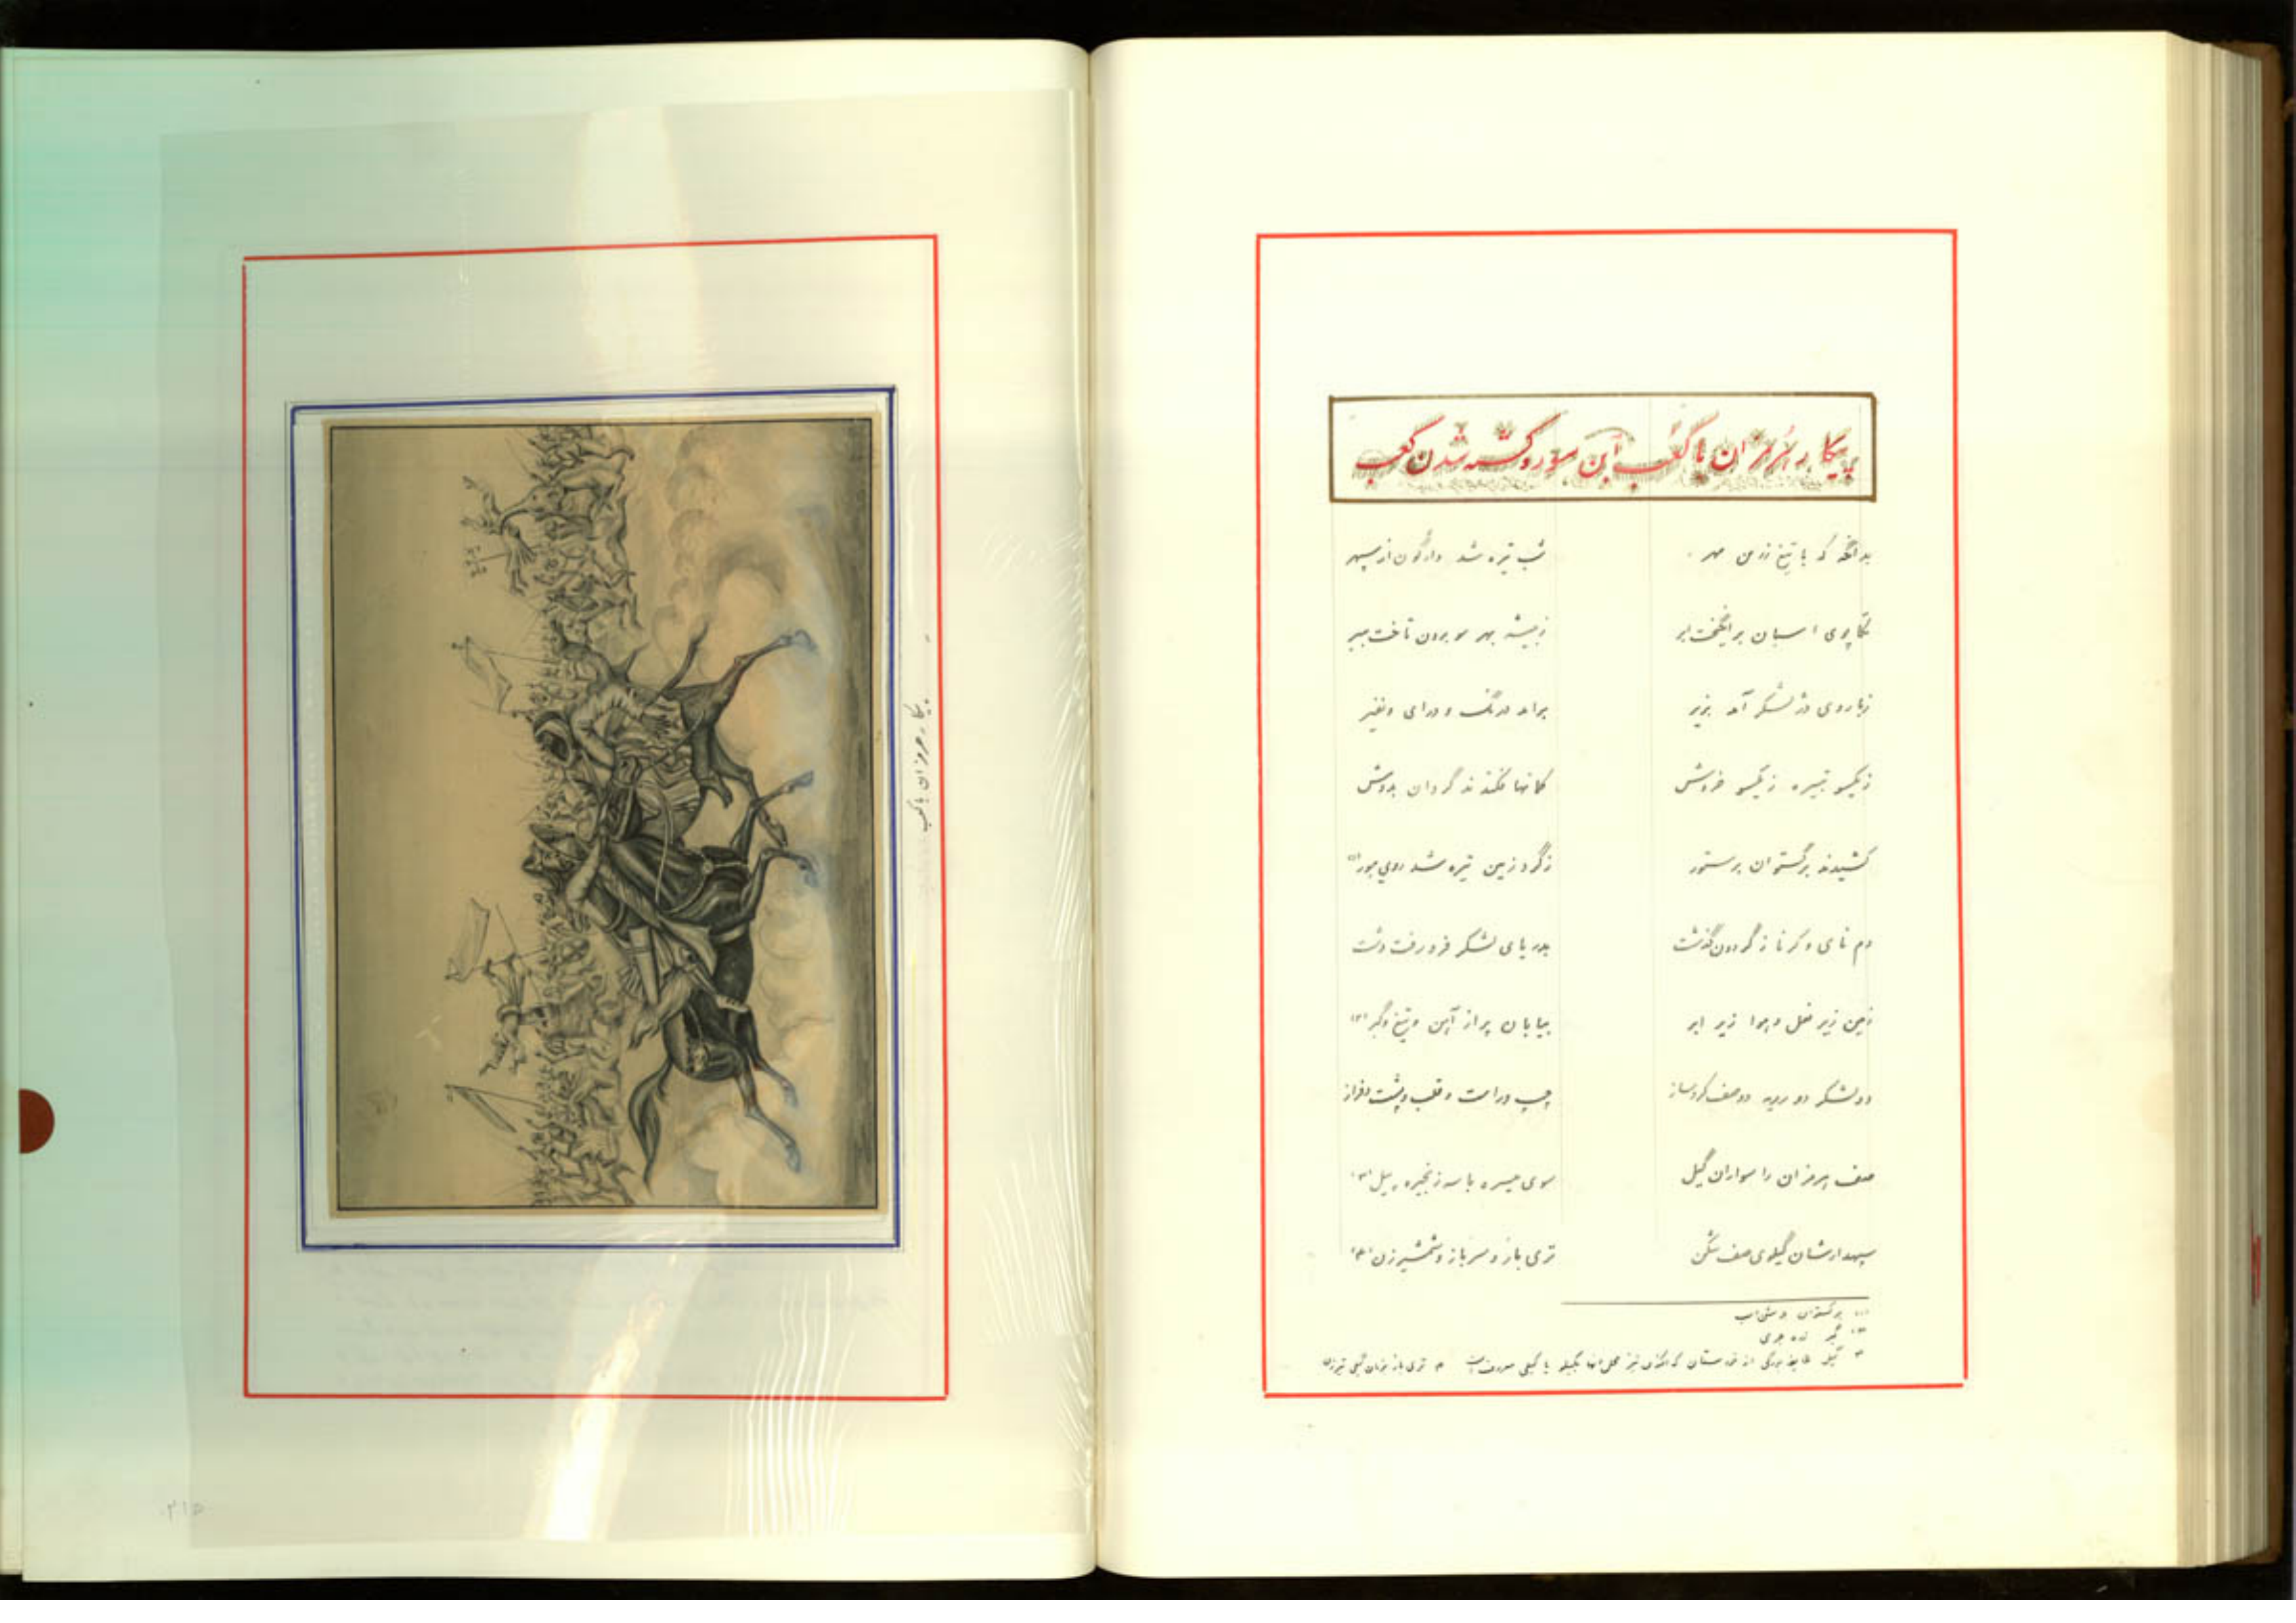 پیکار هرمزان با کعب ابن سور و کشته شدن کعب
بدانگه که با تیغ زرین مهر شب تیره شد واژگون از سپهر
تکاپوی اسبان برانگیخت ابر ز بیشه بهر سو برون تاخت ببر
ز باروی دژ لشکر آمد بزیر برآمد درنگ و درای و نفیر
ز یکسو تبیره ز یکسو خروش کمانها فکندند گردان بدوش
کشیدند برگستوان بر ستور ز گرد زمین تیره شد روی هور (۱)
دم نای و کرنا ز گردون گذشت بدریای لشکر فرو رفت دشت
زمین زیر نعل و هوا زیر ابر بیابان پر از آهن و تیغ و گبر (۲)
دو لشکر دو رویه دو صف کرد ساز چپ و راست و قلب و پشت و فراز
صف هرمزان را سواران گیل سوی میسره با سه زنجیره پیل (۳)
سپهدارشان گیلوی صف شکن تری باز و سرباز و شمشیر زن (۴)
(۱) برگستوان پوشش اسب
(۲) گبر زره جری
۳ گیل طایفه بزرگی از خوزستان که اکنون نیز محل آنها بگیلو یا گیلی معروف است ۴ تری باز بزبان گیلی تیرزن
پیکار هرمزان با کعب